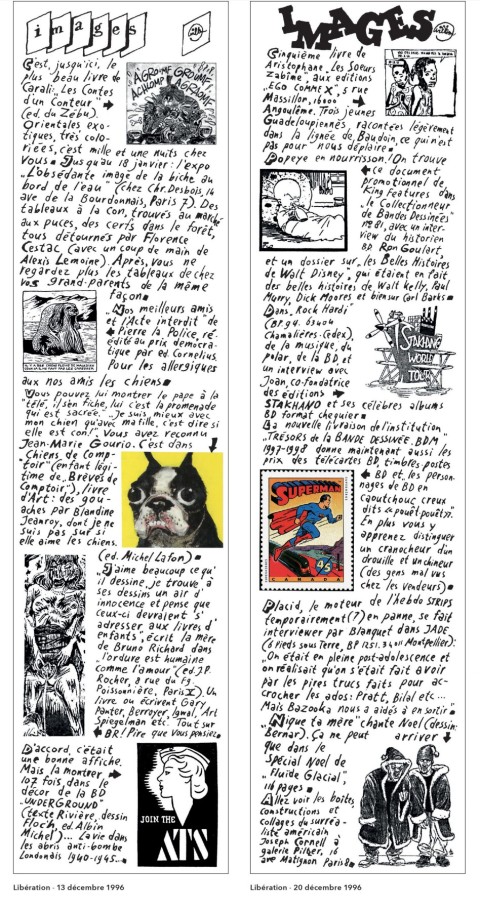 images
C'est, jusqu'ici, le
plus beau livre de
Carali. Les Contes
d'un Conteur"
(ed. du Zébu).
Orientales exo-
tiques, très colo-
riées, c'est mille et une nuits chez
vous. Jusqu'au 18 janvier: l'expo
"L'obsédante image de la biche au
bord de l'eau" (chez Chr. Desbois, 14
ave de la Bourdonnais, Paris 7). Des
tableaux à la con, trouvés au marché
aux puces, des cerfs dans le forêt,
tous détournés par Florence
Cestac (avec un coup de main de
Alexis Lemoine). Après, vous ne
regardez plus les tableaux de chez
vos grand-parents de la même
façon.
"Mes meilleurs amis
et l'Acte interdit de
Pierre la Police, ré-
édité au prix démocra-
tique par ed. Cornélius.
Pour les allergiques
aux nos amis les chiens.
Vous pouvez lui montrer le pape à la
télé, il s'en fiche, lui c'est la promenade
qui est sacrée." "Je suis mieux avec
mon chien qu'avec ma fille, c'est dire si
elle est con!" Vous avez reconnu
Jean-Marie Gourio. C'est dans
"Chiens de Comp-
toir" (enfant légi-
time de "Brèves de
Comptoir"), livre
d'Art: des gou-
aches par Blandine
Jeanroy, dont je ne
suis pas sur si
elle aime les chiens.
(ed. Michel Lafon).
"J'aime beaucoup ce qu'
il dessine, je trouve à
ses dessins un air d'
innocence et pense que
ceux-ci devraient s'
adresser aux livres d'
enfants", écrit la mère
de Bruno Richard dans
"l'ordure est humaine
comme l'amour" (ed. J.P.
Rocher, 8 rue du Fg.
Poissonnière, Paris X). Un
livre ou écrivent Gary
Panter, Berroyer, Igwal, Art
Spiegelman etc. Tout sur
BR! Pire que vous pensiez.
D'accord, c'était
une bonne affiche.
Mais la montrer
107 fois, dans le
décor de la BD
"UNDERGROUND"
(texte Rivière, dessin
Floc'h, ed. Albin
Michel)... La vie dans
les abris anti-bombe
Londonais 1940-1945...
JOIN THE
ATS
Libération - 13 décembre 1996
IMAGES
willem
Cinquième livre de
Aristophane "Les Soeurs
Zabîme", aux editions
"EGO COMME X", 5 rue
Massillon, 16000
Angoulême. Trois jeunes
Guadeloupiennes racontées légèrement
dans la lignée de Baudoin, ce qui n'est
pas pour nous déplaire.
Popeye en nourrisson! On trouve
ce document
promotionnel de
King Features dans
"le Collectionneur
de Bandes Dessinées"
n° 81, avec un inter-
view du historien
BD Ron Goulart,
et un dossier sur "les Belles Histoires
de Walt Disney", qui étaient en fait
des belles histoires de Walt Kelly, Paul
Murry, Dick Moores et bien sur Carl Barks.
Dans "Rock Hardi"
(BP 94. 63404
Chamalières-Cedex),
de la musique, du
polar, de la BD et
un interview avec
Joan, co-fondatrice
des éditions
STAKHANO et ses célèbres albums
BD format chequier.
STAKHANO
WORLD
TOUR
La nouvelle livraison de l'institution
"TRÉSORS de la BANDE DESSINÉE. BDM
1997-1998 donne maintenant aussi les
prix des télécartes BD, timbres postes
BD et les person-
nages de BD en
caoutchouc creux
dits "pouêt pouêt".
En plus vous y
apprenez distinguer
un cranocheur d'un
drouille et un chineur
(des gens mal vus
chez les vendeurs).
SUPERMAN
45
CANADA
Placid, le moteur de l'hebdo STRIPS
temporairement(?) en panne, se fait
interviewer par Blanquet dans JADE
(6 Pieds sous Terre, BP 1251. 34011 Montpellier):
"On était en pleine post-adolescence et
on réalisait qu'on s'était fait avoir
par les pires trucs faits pour ac-
crocher les ados: Pratt, Bilal etc...
Mais Bazooka nous a aidés à en sortir."
"Nique ta mère" chante Noel (dessin:
Bernar). Ça ne peut arriver
que dans le
Spécial Noel de
"Fluide Glacial",
116 pages.
Allez voir les boîtes,
constructions et
collages du surréa-
liste américain
Joseph Cornell à
galerie Piltzer, 16
ave Matignon Paris 8.
Libération - 20 décembre 1996